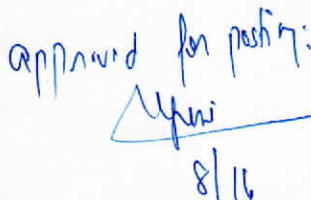 approved for posting:
8/16